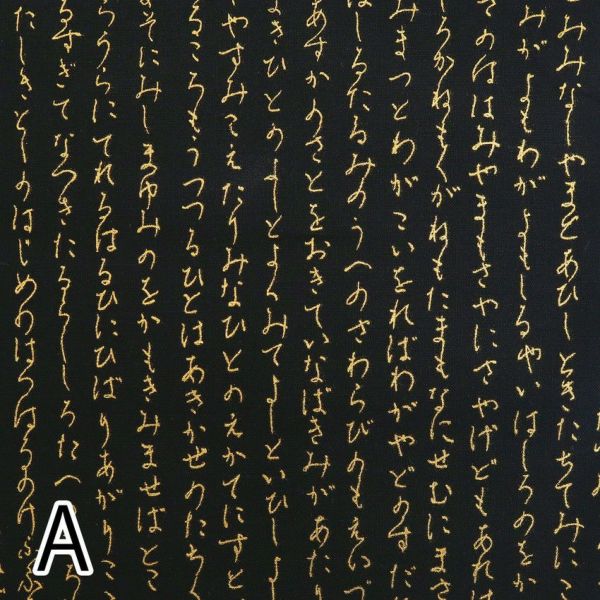 とみみなしやまとあひしときたちてみにこ
みがよもわがよもしるやいはしろのをか
さのははみやまもさやにさやげどもあれは
しろかねもくがねもたまもなにせむにまさ
みまつとわがこいをればわがやどのすだ
はしるたるみのうへのさわらびのもえいづ
あすかのさとをおきていなばきみがあたり
よきひとのよしとよくみてよしといひしよ
やすみこえたりみなひとのえかてにすと
るころもうつつるひとはあきかぜのたちく
そにみしまゆみのをかもきみませばとこ
うらにてれるはるひにひばりあがりこ
るすぎてなつきたるらししろたへ
たしきとしのはじめのはつはるのけふふ
A